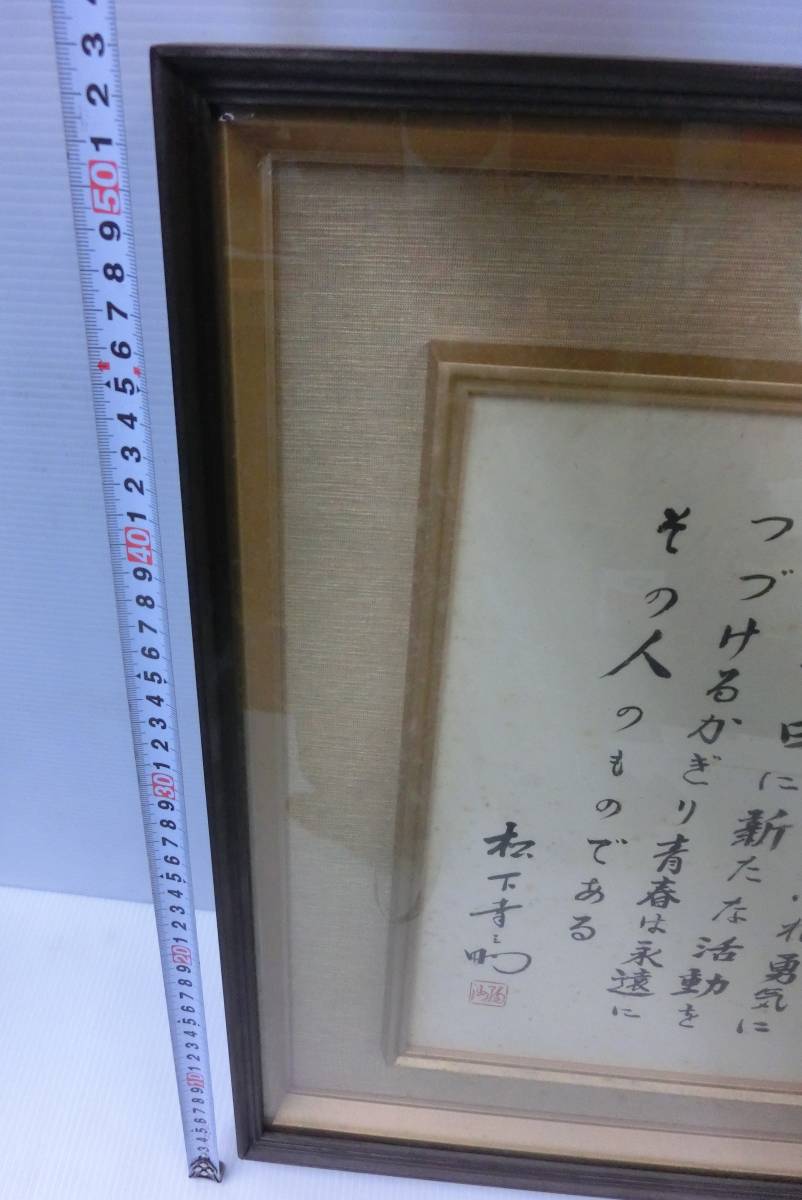 れ勇気に
日に新たな活動を
つづけるかぎり青春は永遠に
その人のものである
松下幸之助
3 2 1 50 9 8 7 6 5 4 3 2 1 40 9 8 7 6 5 4 3 2 1 30 9 8 7 6 5 4 3 2 1 20 9 8 7 6 5 4 3 2 1 10 9 8 7 6 5 4 3